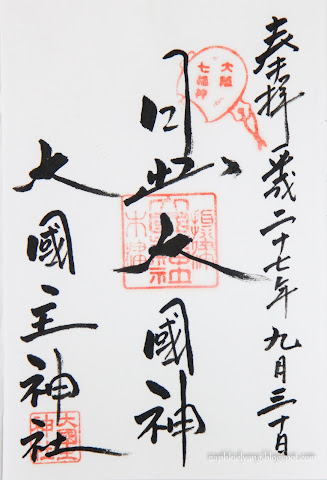 奉拝 平成二十七年九月三十日
大阪
七福神
日出大國神
大國主神社
大国主
神社